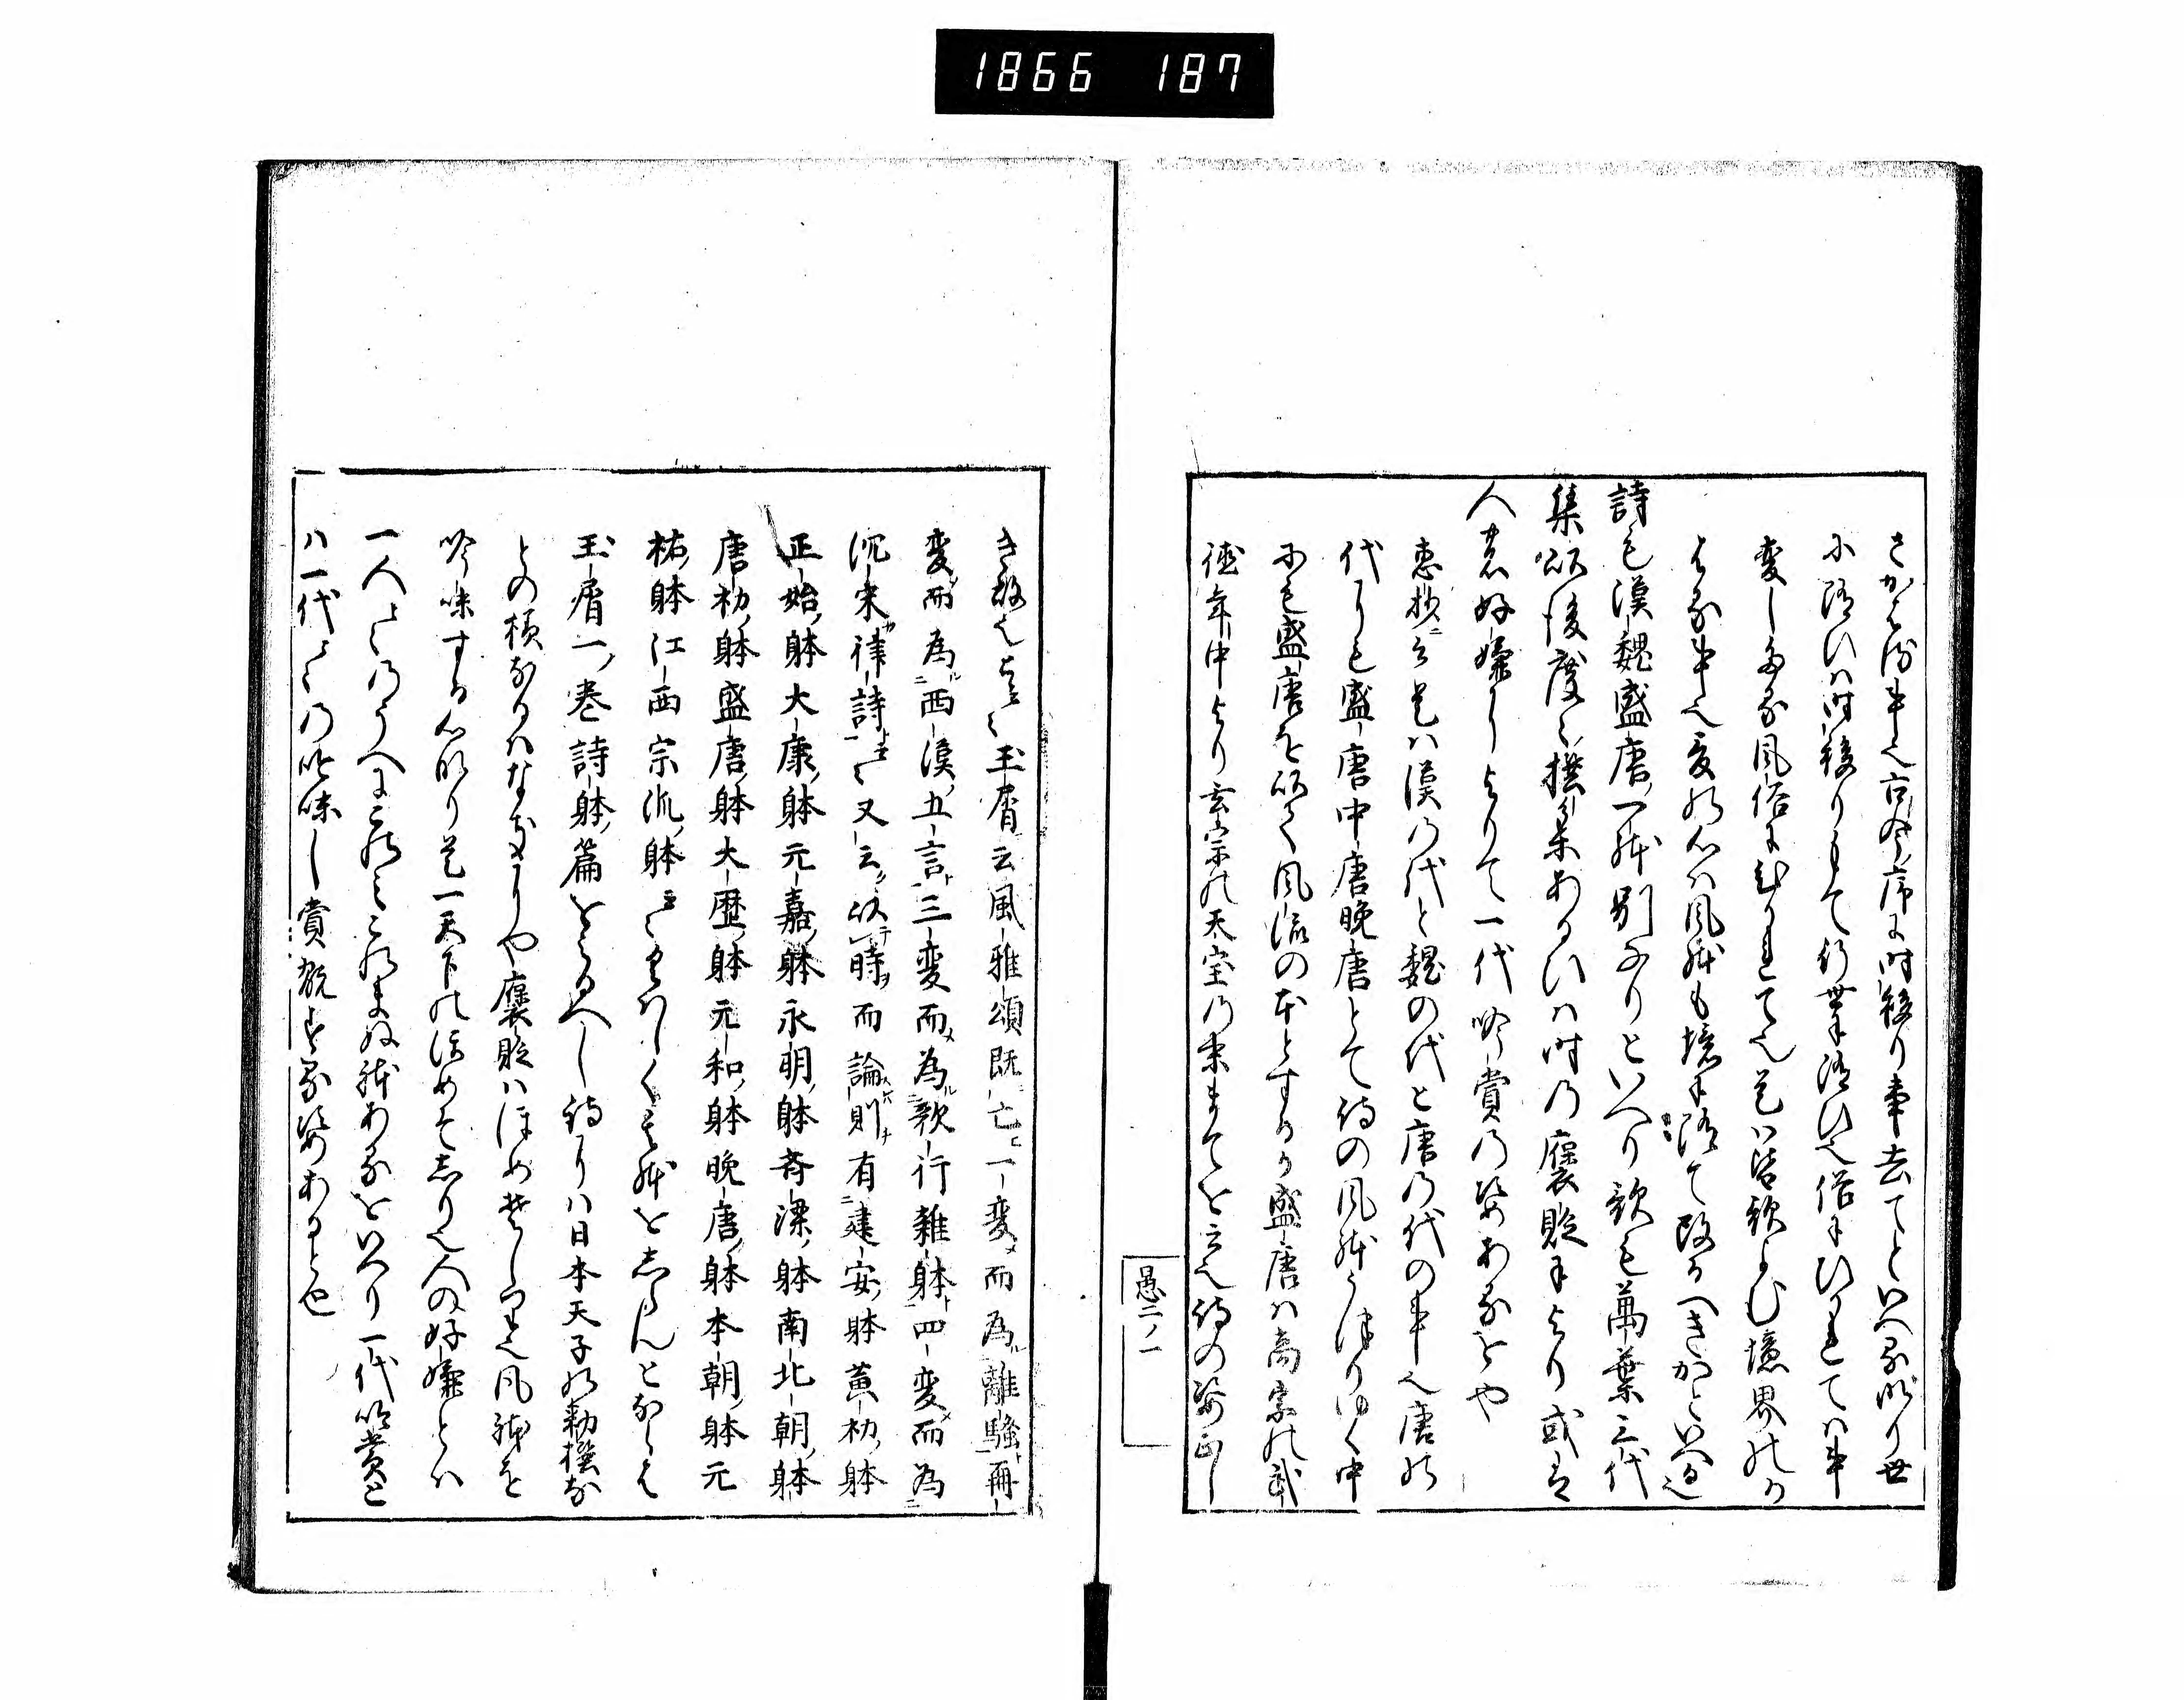 1866 187
さかえ侍事也古今序に時移り事去てといへる此り世
小随ひハ時移りもて行世に随ひ也俗にひかれてハ事
変しある風俗にひかれて也是ハ皆歌よむ境界のか
はる事也変の心ハ風躰も境に随て改るへきかといへる也
詩も漢魏盛唐一躰別なりといへり歌も萬葉三代
集以後度々撰集あるひハ時の褒貶によりて或は
人の好嫌によりて一代吟賞の姿あるをや
恵抄ニ云是ハ漢の代と魏の代と唐の代の事也唐の
代りも盛唐中唐晩唐とて詩の風躰うつりゆく中
にも盛唐を以て風流の本とするか盛唐ハ高宗の武
徳年中より玄宗の天宝の末まてを云也詩の姿正し
愚二ノ一
き故也とそ玉屑云風雅頌既亡一変而為離騒再
変而為西漢五言三変而為歌行雑躰四変而為
沈宋律詩云々又云以時而論則有建安躰黄初躰
正始躰大康躰元嘉躰永明躰斉梁躰南北朝躰
唐初躰盛唐躰大歴躰元和躰晩唐躰本朝躰元
祐躰江西宗派躰云々くハしくも躰をしらんとならは
玉屑一巻詩躰篇をみるへし詩りハ日本天子の勅撰な
との様なるハなきなりや褒貶ハほめそしり也風躰を
吟味する心なり是一天下のほめそしり也人の好嫌とハ
一人々々のうへにこのみこのまぬ躰あるをいへり一代吟賞と
ハ一代々々の吟味し賞翫する姿あると也